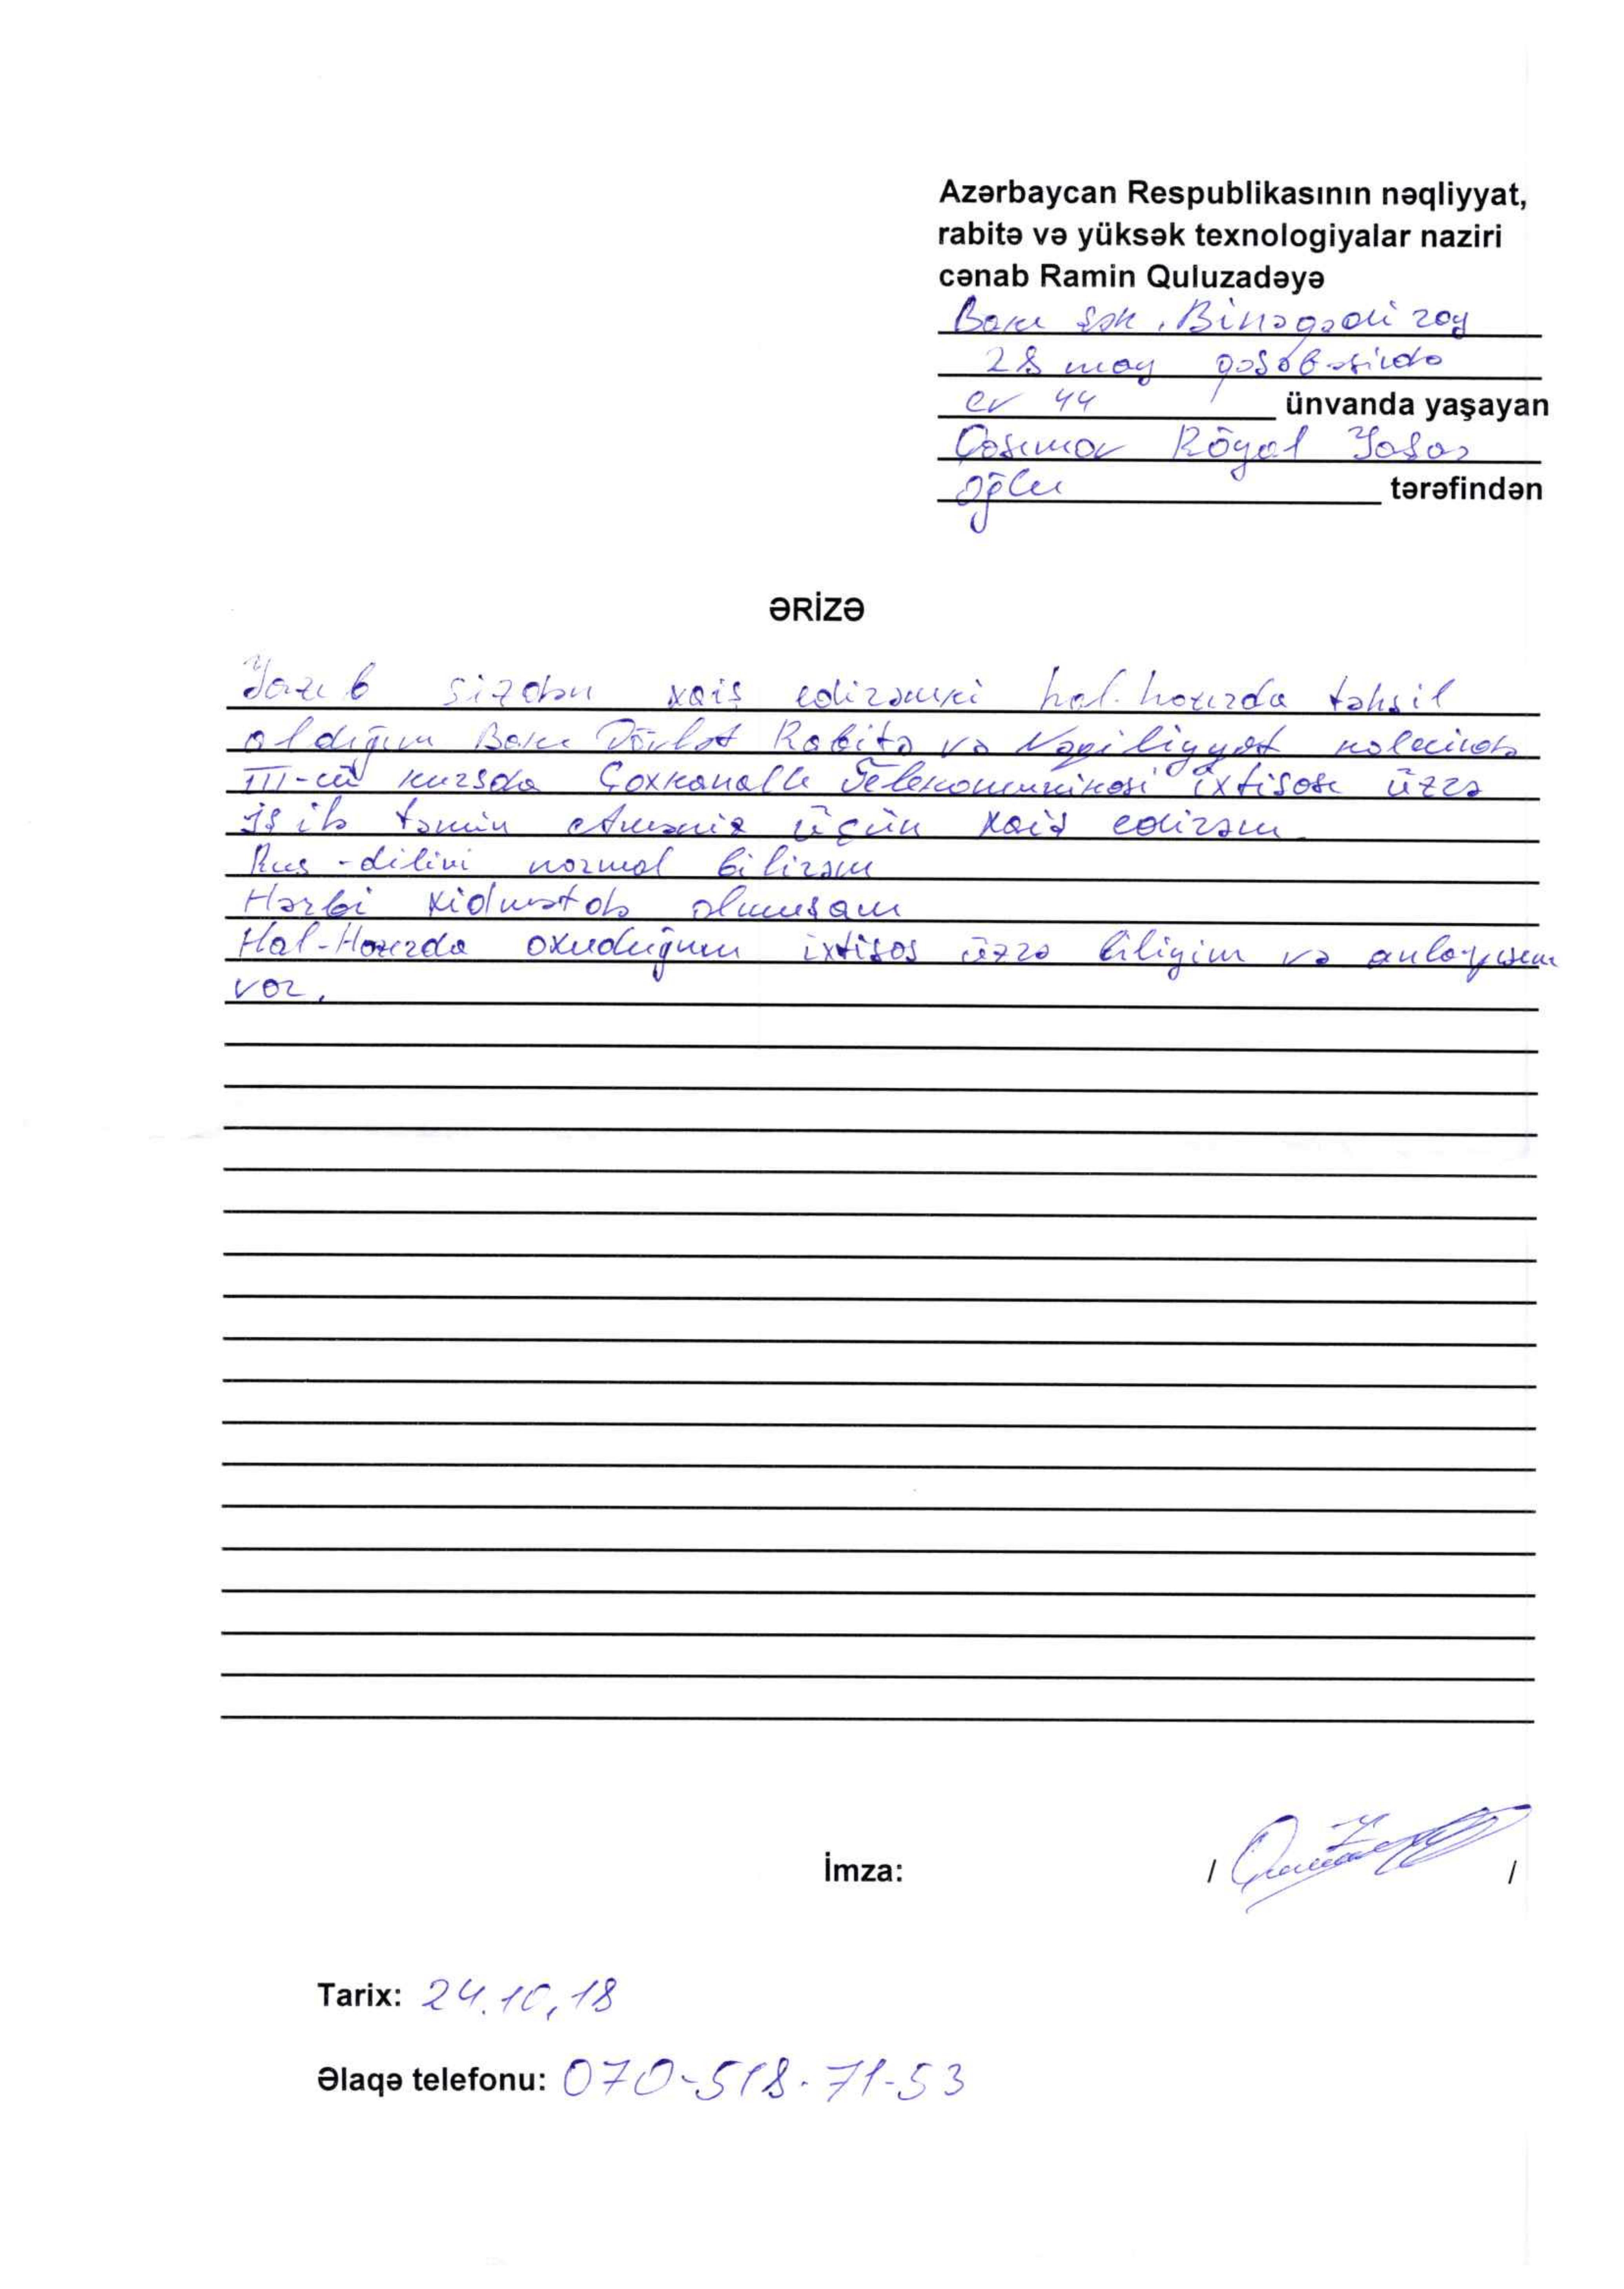 Azərbaycan Respublikasının nəqliyyat,
rabitə və yüksək texnologiyalar naziri
cənab Ramin Quluzadəyə
Bakı şəh, Binəqədi ray
28 may qəsəbəsində
ev 44 ünvanda yaşayan
Qasımov Röyal Yaşar
oğlu tərəfindən
ƏRİZƏ
Yazıb sizdən xaiş edirəmki hal-hazırda təhsil
aldığım Bakı Dövlət Rabitə və Nəqiliyyat kolecində
III-cü kursda Çoxkanallı Telekomunikasi ixtisası üzrə
iş ilə təmin etməniz üçün xaiş edirəm
Rus-dilini normal bilirəm
Hərbi xidmətdə olmuşam
Hal-Hazırda oxuduğum ixtisas üzrə biliyim və anlayışım
var.
İmza: / /
Tarix: 24.10,18
Əlaqə telefonu: 070-518-71-53